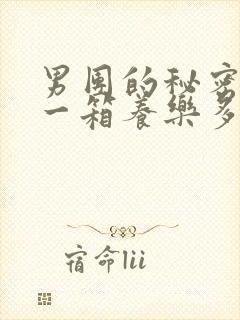 男团的秘密
一箱养乐多
宿命lii